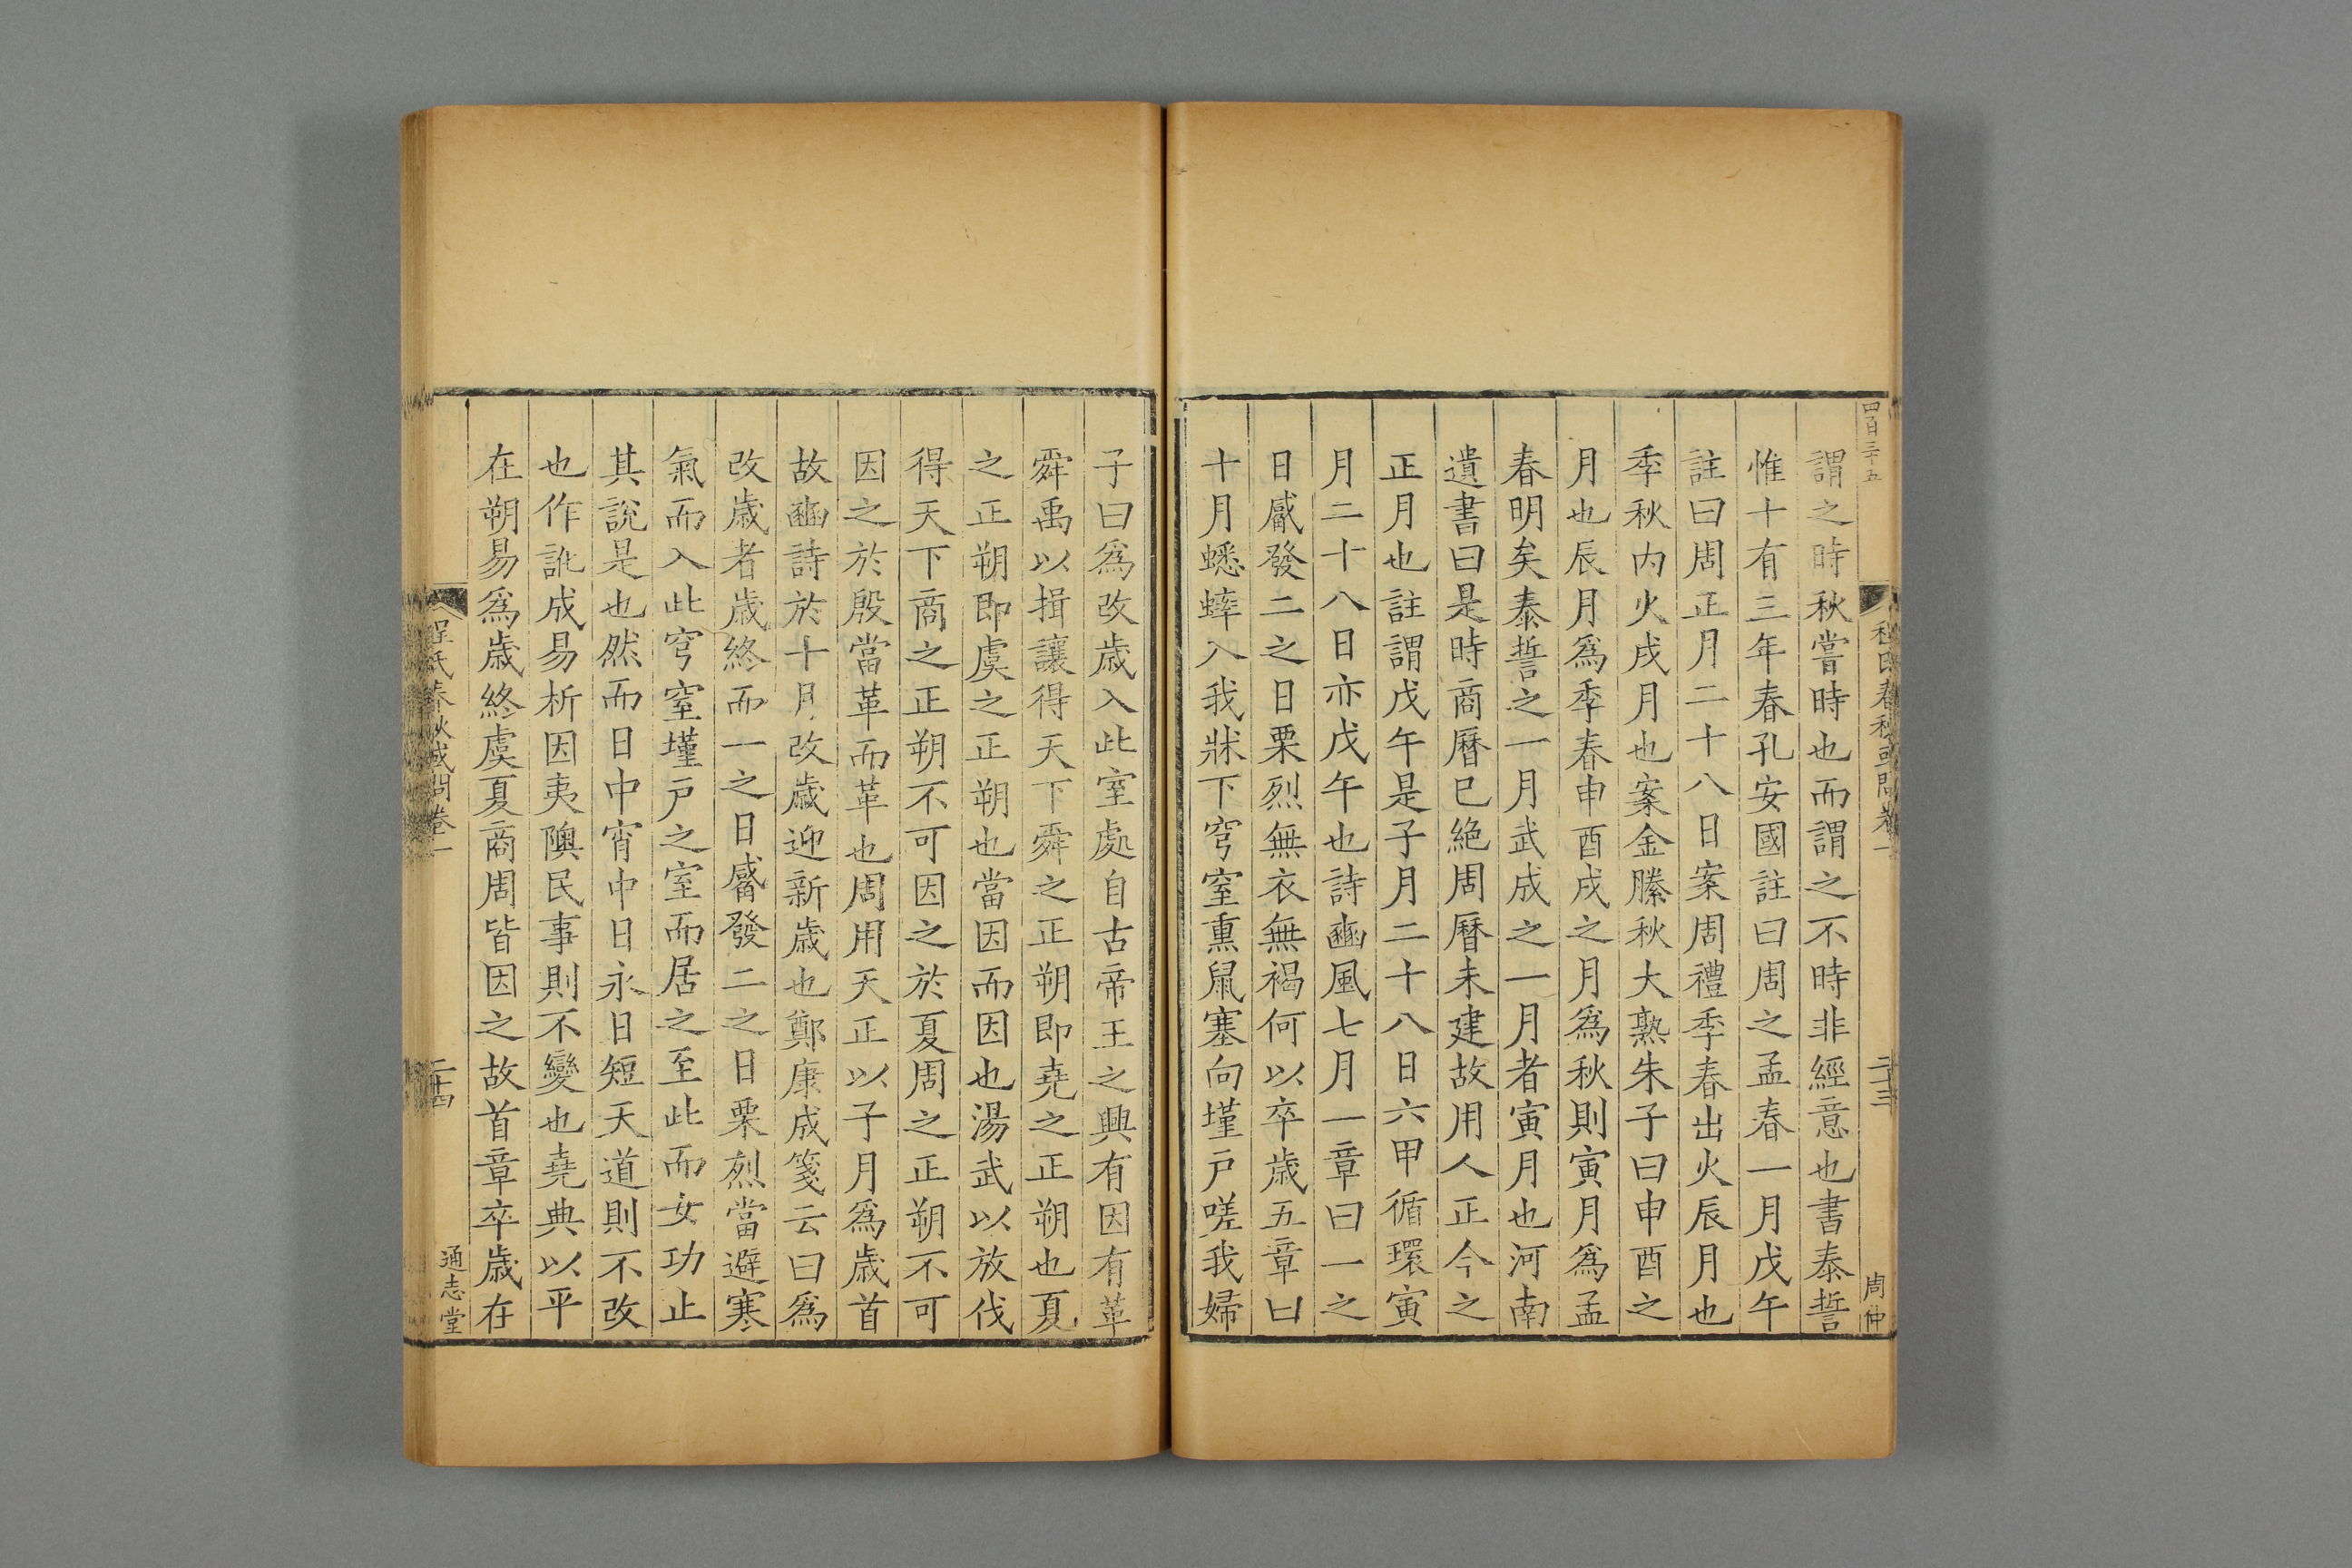 四百三十五
程氏春秋或問卷一
二十三
周仲
謂之時秋嘗時也而謂之不時非經意也書泰誓
惟十有三年春孔安國註曰周之孟春一月戊午
註曰周正月二十八日案周禮季春出火辰月也
季秋内火戌月也案金縢秋大熟朱子曰申酉之
月也辰月爲季春申酉戌之月爲秋則寅月爲孟
春明矣泰誓之一月武成之一月者寅月也河南
遺書曰是時商曆已絶周曆未建故用人正今之
正月也註謂戊午是子月二十八日六甲循環寅
月二十八日亦戊午也詩豳風七月一章曰一之
日觱發二之日栗烈無衣無褐何以卒歳五章曰
十月蟋蟀入我牀下穹窒熏鼠塞向墐戸嗟我婦
子曰爲改歳入此室處自古帝王之興有因有革
舜禹以揖讓得天下舜之正朔即堯之正朔也夏
之正朔即虞之正朔也當因而因也湯武以放伐
得天下商之正朔不可因之於夏周之正朔不可
因之於殷當革而革也周用天正以子月爲歳首
故豳詩於十月改歳迎新歳也鄭康成箋云曰爲
改歳者歳終而一之日觱發二之日栗烈當避寒
氣而入此穹窒墐戸之室而居之至此而女功止
其說是也然而日中宵中日永日短天道則不改
也作訛成易析因夷隩民事則不變也堯典以平
在朔易爲歳終虞夏商周皆因之故首章卒歳在
程氏春秋或問卷一
二十四
通志堂